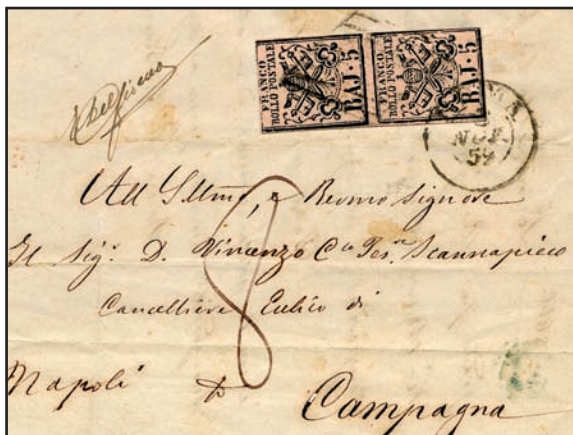 FRANCO BOLLO POSTALE BAJ·5
FRANCO BOLLO POSTALE BAJ·5
NOV
59
All Illmo, e Revmo Signore
Il Sigr. D. Vincenzo Scannapieco
Cancelliere di
8
Napoli
Campagna